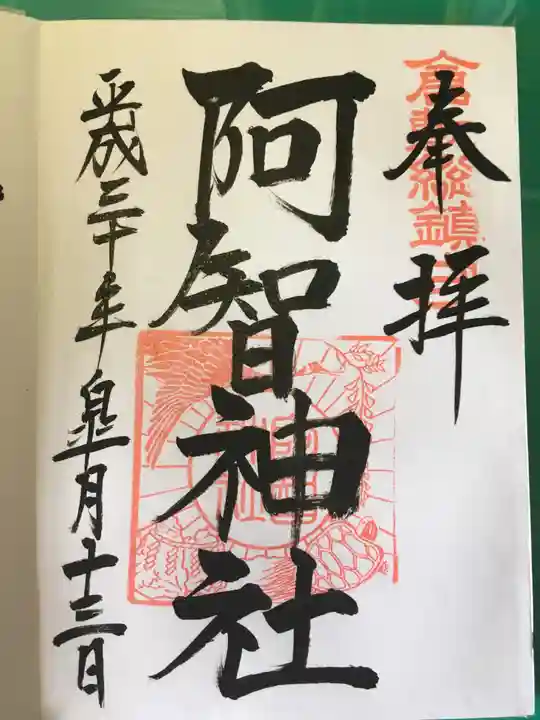 奉拝
倉敷総鎮守
阿智神社
平成三十年皐月十三日